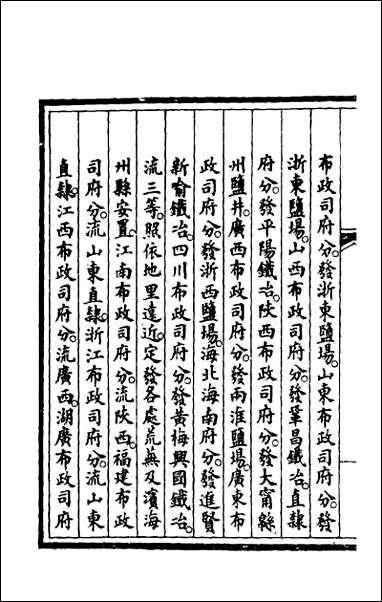 布政司府分。發浙東鹽場。山東布政司府分。發
浙東鹽場。山西布政司府分。發鞏昌鐵冶。直隷
府分。發平陽鐵冶。陜西布政司府分。發大甯縣
州鹽井。廣西布政司府分。發兩淮鹽場。廣東布
政司府分。發浙西鹽場。海北海南府分。發進賢
新喻鐵冶。四川布政司府分。發黃梅興國鐵冶。
流三等。照依地里遠近。定發各處荒蕪及濱海
州縣安置。江南布政司府分。流陜西。福建布政
司府分。流山東直隷。浙江布政司府分。流山東
直隷。江西布政司府分。流廣西。湖廣布政司府